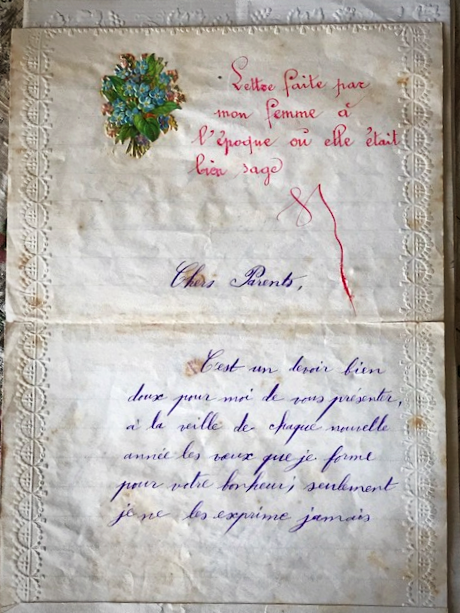 Lettre faite par
mon femme à
l'époque où elle était
bien sage
Chers Parents,
C'est un devoir bien
doux pour moi de vous présenter,
à la veille de chaque nouvelle
année les vœux que je forme
pour votre bonheur; seulement
je ne les exprime jamais